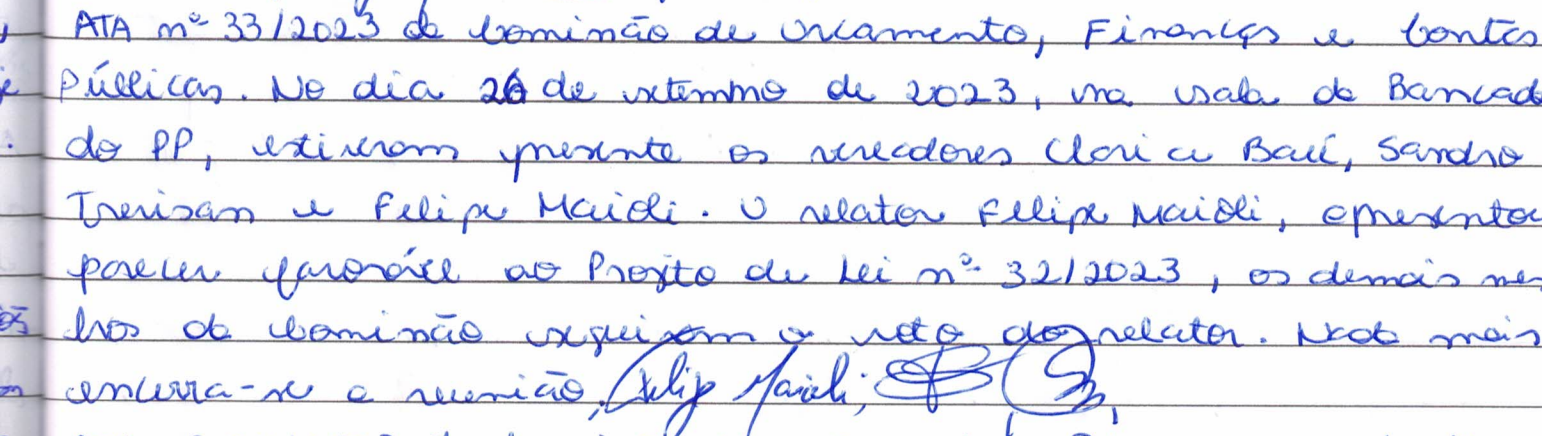 ATA nº 33/2023 da Comissão de Orcamento, Finanças e Contas
Públicas. No dia 26 de setembro de 2023, na sala da Bancad
do PP, estiveram presente os vereadores Clarice Baú, Sandro
Trevisan e Felipe Maioli. O relator Felipe Maioli, apresentou
parecer favorável ao Projeto de Lei nº 32/2023, os demais mem
bros da Comissão seguiram o voto do relator. Nada mais
encerra-se a reunião. Felipe Maioli;